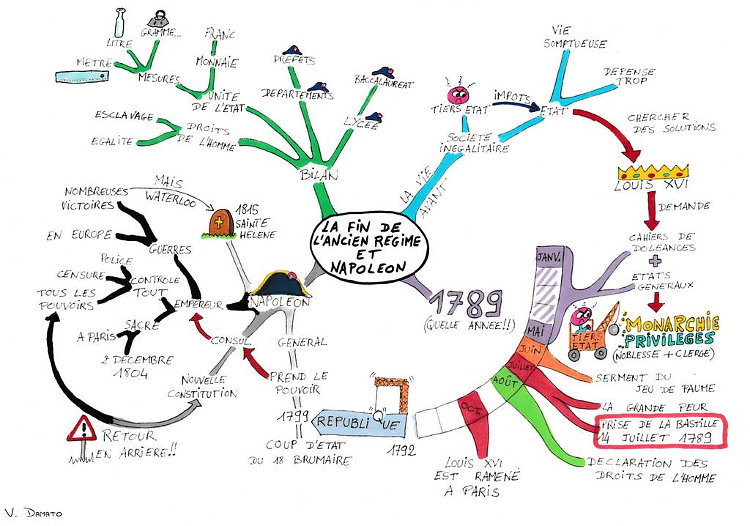 LA FIN DE
L'ANCIEN REGIME
ET
NAPOLEON
LA VIE
AVANT
SOCIETE
INEGALITAIRE
TIERS ETAT
IMPOTS
ETAT
VIE
SOMPTUEUSE
DEPENSE
TROP
CHERCHER
DES SOLUTIONS
LOUIS XVI
DEMANDE
CAHIERS DE
DOLEANCES
+
ETATS
GENERAUX
MONARCHIE
PRIVILEGES
(NOBLESSE + CLERGE)
TIERS
ETAT
1789
(QUELLE ANNEE!!)
JANV.
MAI
JUIN
JUILLET
AOÛT
OCT.
SERMENT DU
JEU DE PAUME
LA GRANDE PEUR
PRISE DE LA BASTILLE
14 JUILLET 1789
DECLARATION DES
DROITS DE L'HOMME
LOUIS XVI
EST RAMENÉ
A PARIS
REPUBLIQUE
1792
1799
COUP D'ETAT
DU 18 BRUMAIRE
NAPOLEON
GENERAL
PREND LE
POUVOIR
CONSUL
NOUVELLE
CONSTITUTION
EMPEREUR
GUERRES
NOMBREUSES
VICTOIRES
EN EUROPE
MAIS
WATERLOO
1815
SAINTE
HELENE
CONTROLE
TOUT
POLICE
CENSURE
TOUS LES
POUVOIRS
SACRE
A PARIS
2 DECEMBRE
1804
RETOUR
EN ARRIERE!!
BILAN
DROITS
DE L'HOMME
ESCLAVAGE
EGALITE
UNITE
DE L'ETAT
MESURES
METRE
LITRE
GRAMME...
MONNAIE
FRANC
DEPARTEMENTS
PREFETS
LYCEE
BACCALAUREAT
V. DAMATO